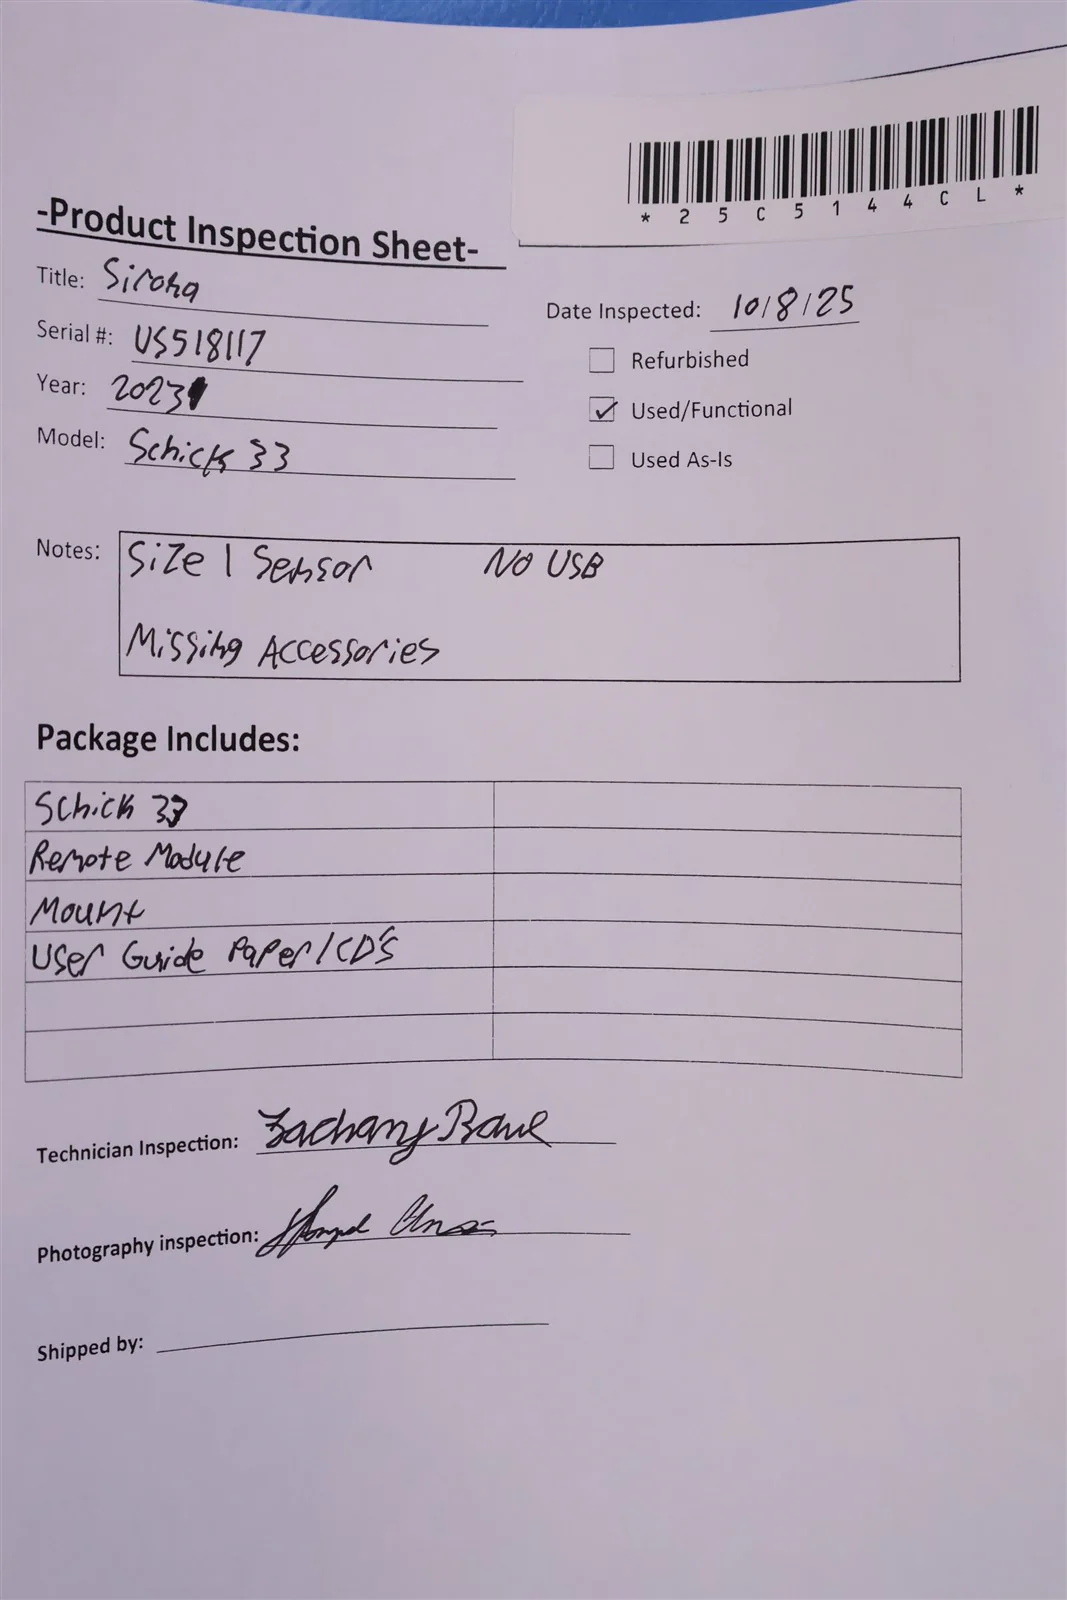 *25C5144CL*
-Product Inspection Sheet-
Title: Sirona
Date Inspected: 10/8/25
Serial #: US518117
Refurbished
Year: 2023
Used/Functional
Model: Schick 33
Used As-Is
Notes: Size 1 Sensor No USB
Missing Accessories
Package Includes:
Schick 33
Remote Module
Mount
User Guide Paper/CD's
Technician Inspection: Zachary
Photography inspection:
Shipped by: